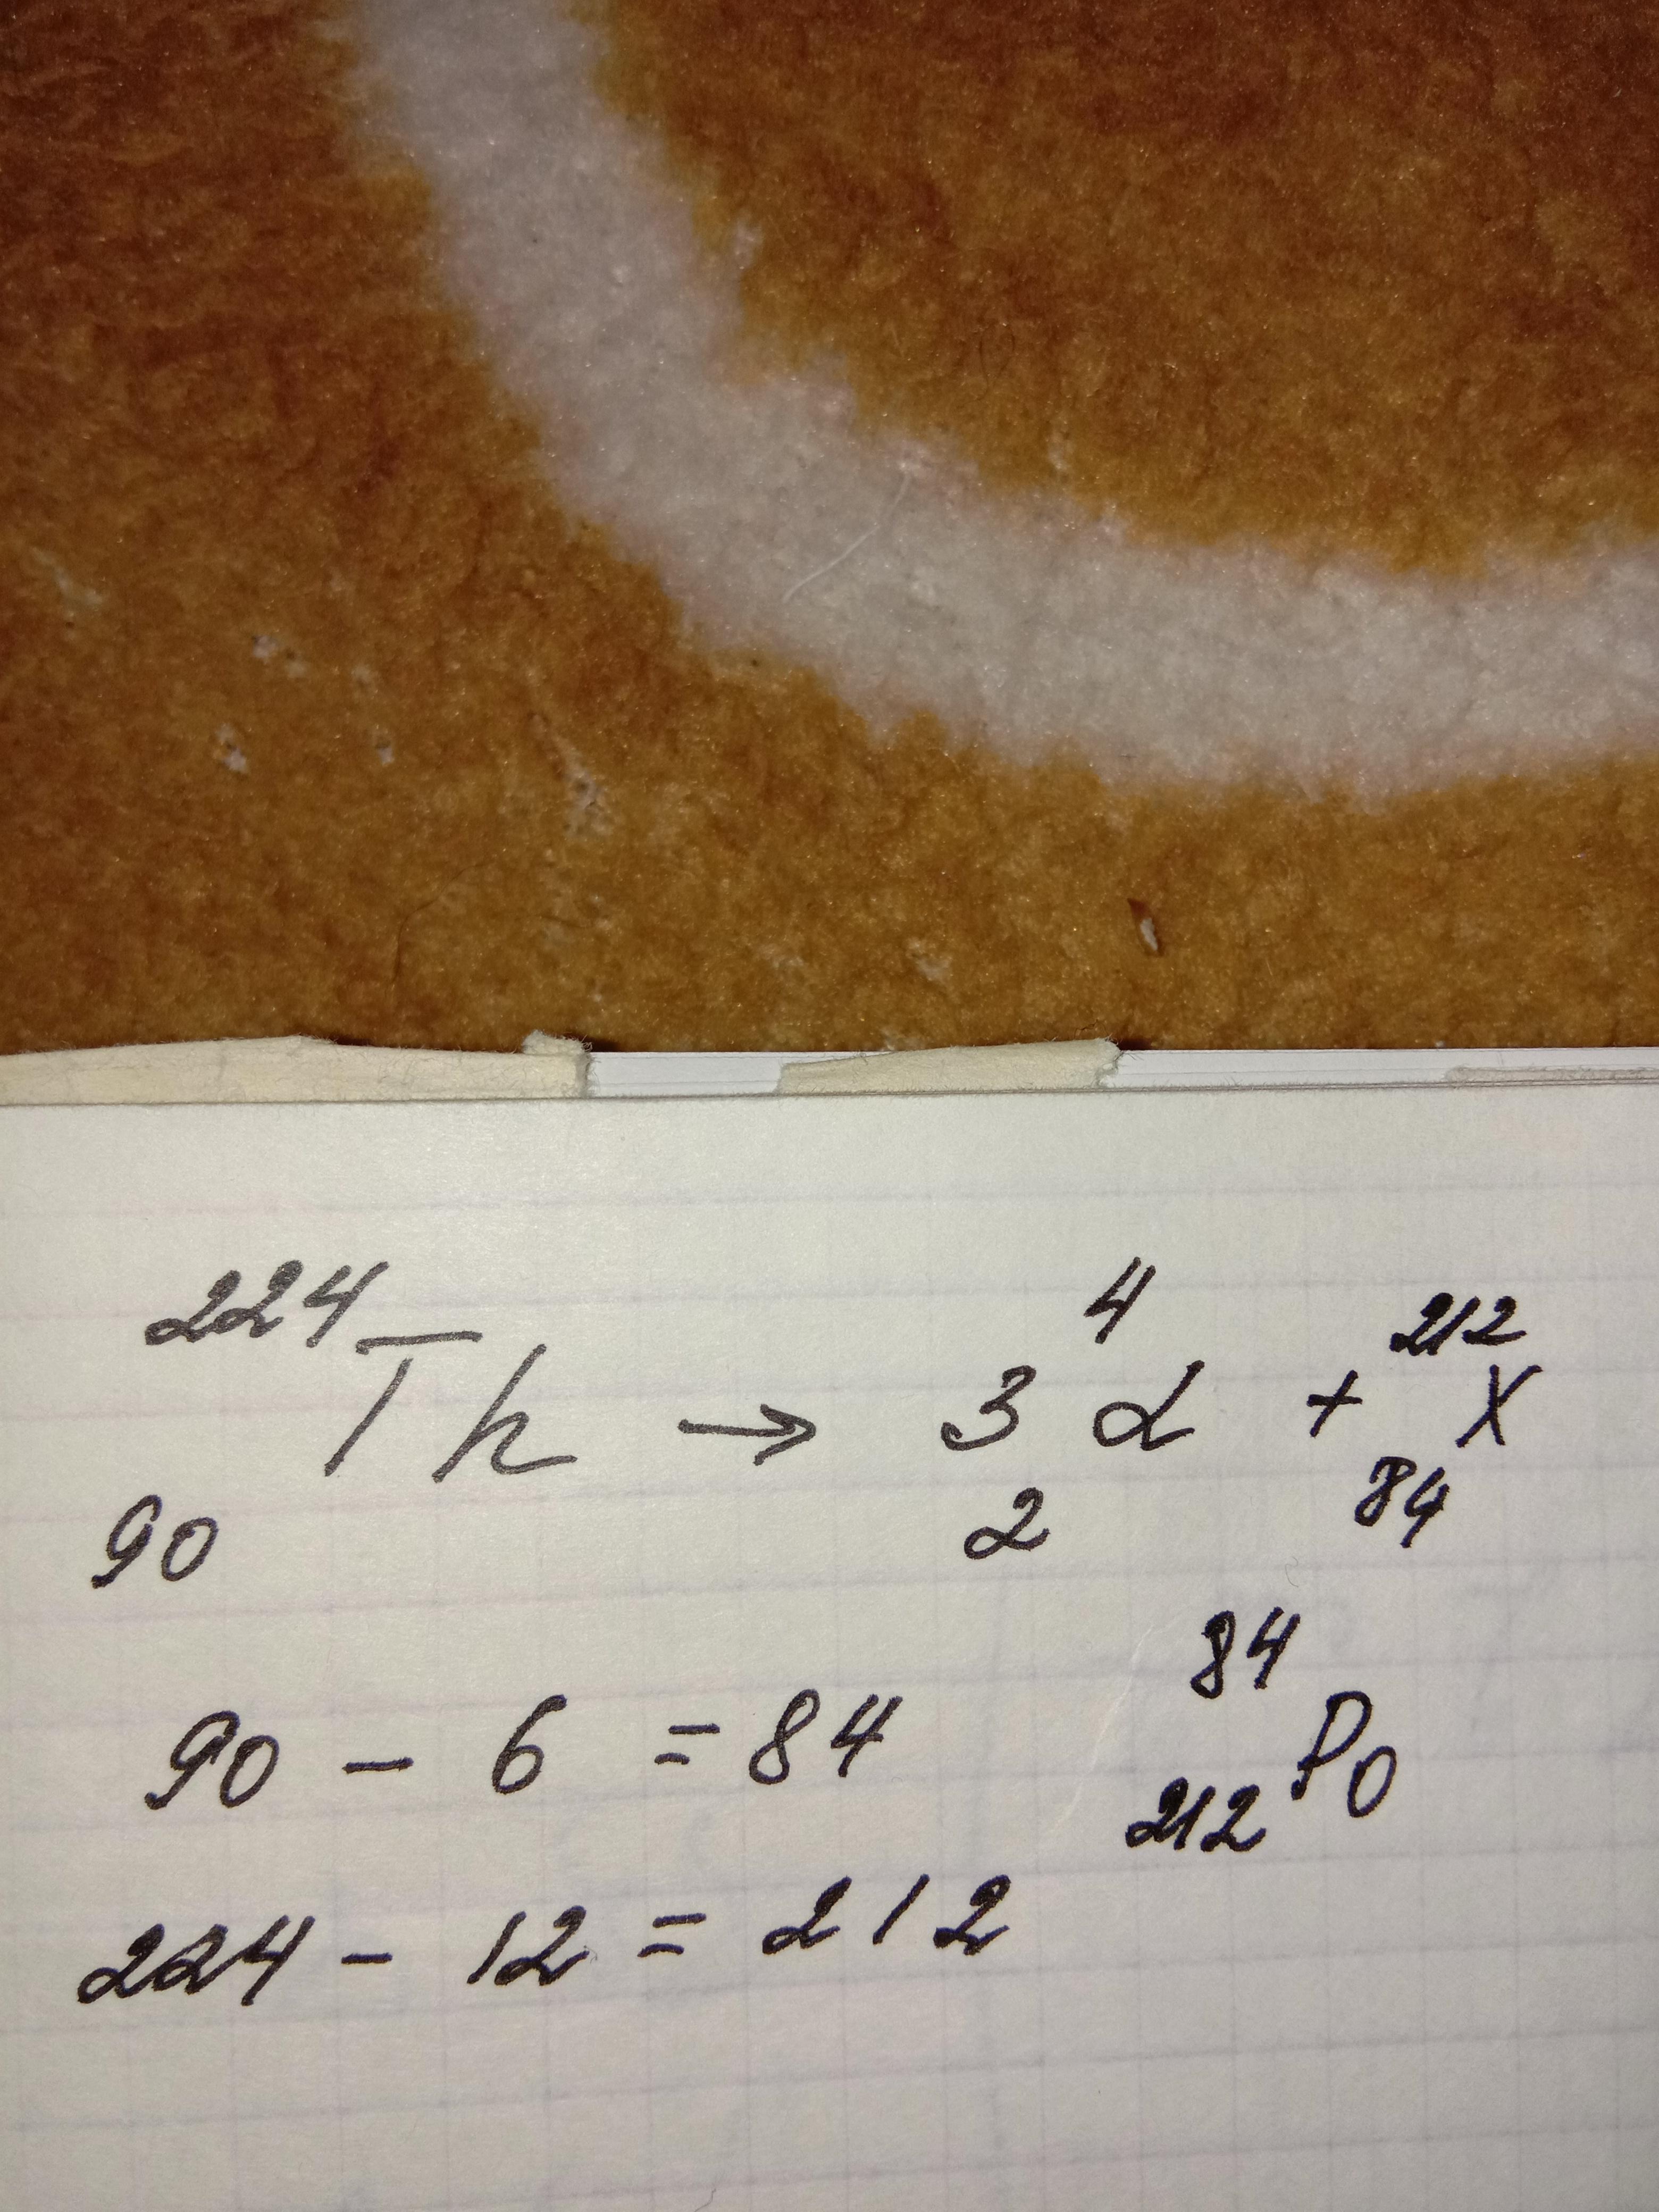 224 4 212
Th → 3 α + X
90 2 84
84
90 - 6 = 84 Po
212
224 - 12 = 212